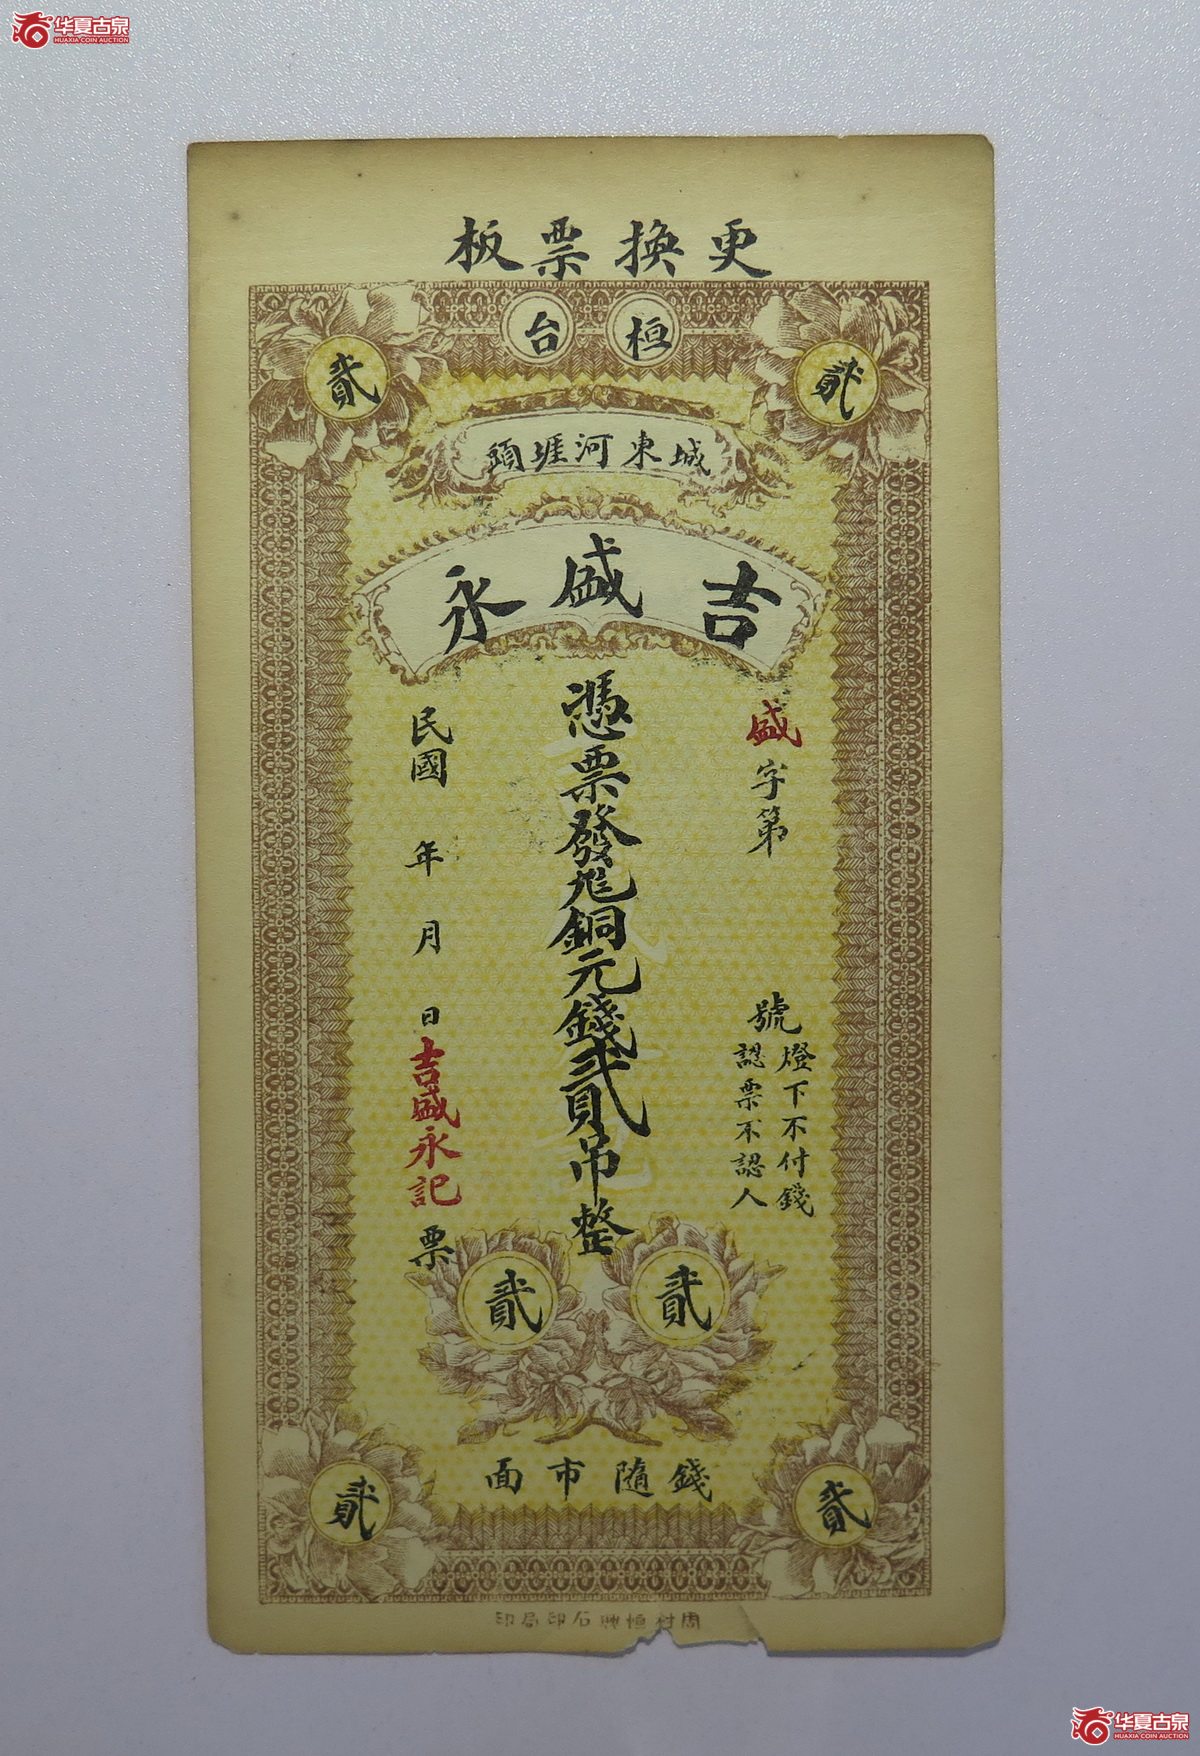 华夏古泉
HUAXIA COIN AUCTION
更換票板
桓台
貳
貳
城東河涯頭
吉盛永
盛字第
號
燈下不付錢
認票不認人
憑票發兌銅元錢貳吊整
民國 年 月 日吉盛永記票
貳
貳
錢隨市面
貳
貳
周村恒興石印局印
华夏古泉
HUAXIA COIN AUCTION